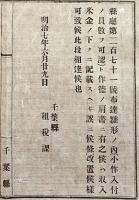 縣廳第二百七十一號布達雛形ノ内小作入付
ノ員數ヲ可認ト作德ノ肩書ニ有之候ヘ收入
米金ノ下タニ記載スヘキ誤ニ候條改置候樣
可致候此段相達候也
明治七年六月廿九日
千葉縣
租稅課
千葉縣